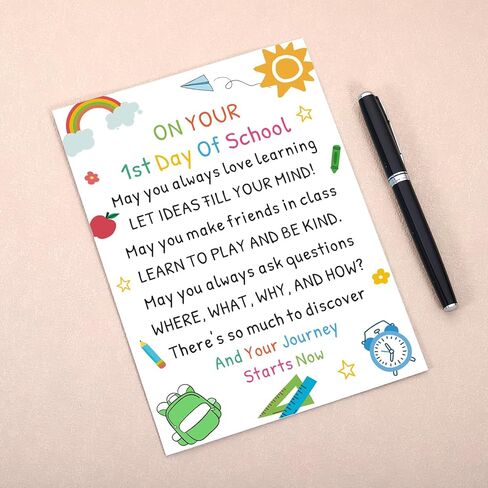 ON YOUR
1st Day Of School
May you always love learning
LET IDEAS FILL YOUR MIND!
May you make friends in class
LEARN TO PLAY AND BE KIND.
May you always ask questions
WHERE, WHAT, WHY, AND HOW?
There's so much to discover
And Your Journey
Starts Now